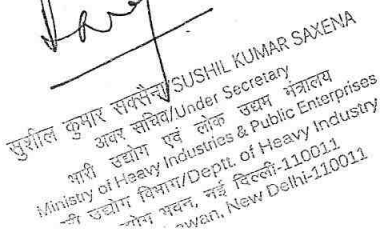 सुशील कुमार सक्सैना/SUSHIL KUMAR SAXENA
अवर सचिव/Under Secretary
भारी उद्योग एवं लोक उद्यम मंत्रालय
Ministry of Heavy Industries & Public Enterprises
उद्योग विभाग/Deptt. of Heavy Industry
भवन, नई दिल्ली-110011
New Delhi-110011